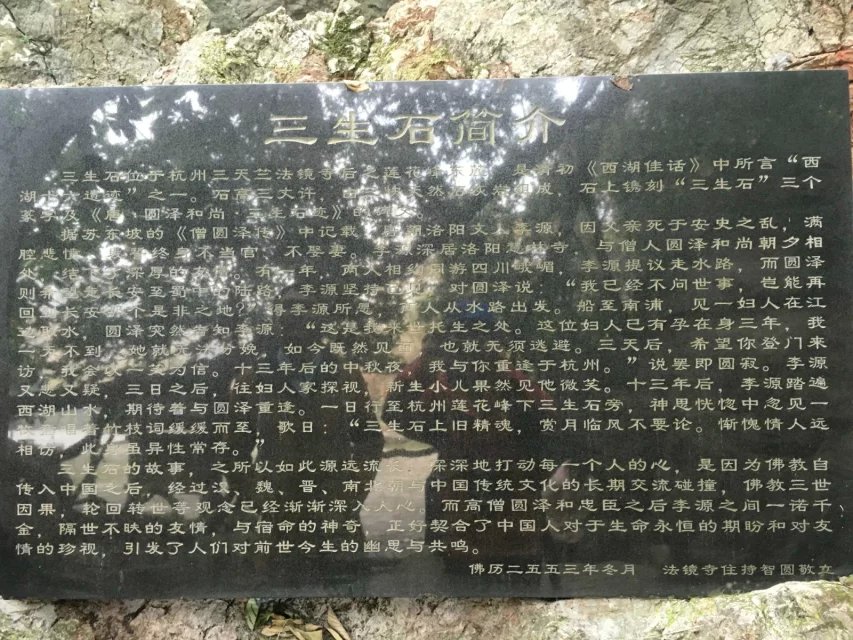 三生石简介
三生石位于杭州三天竺法镜寺后之莲花峰东麓，是清初《西湖佳话》中所言“西
湖十六遗迹”之一。石高三丈许，由三块天然石灰岩组成，石上镌刻“三生石”三个
篆字及《唐·圆泽和尚·三生石迹》的碑文。
据苏东坡的《僧圆泽传》中记载，唐朝洛阳文人李源，因父亲死于安史之乱，满
腔悲愤，终身不当官，不娶妻。深居洛阳惠林寺，与僧人圆泽和尚朝夕相
处，结下深厚的友情。有一年，两人相约同游四川峨嵋，李源提议走水路，而圆泽
则长安至陆路，李源坚持己见，对圆泽说：“我已经不问世事，岂能再
回到长安那个是非之地？”得李源所愿，人从水路出发。船至南浦，见一妇人在江
边取水，圆泽突然告知李源：“这是我来世托生之处。这位妇人已有孕在身三年，我
一天不到，她就无分娩，如今既然见，也就无须逃避。三天后，希望你登门来
访，我会以一笑为信。十三年后的中秋夜，我与你重逢于杭州。”说罢即圆寂。李源
又悲又疑，三日之后，往妇人家探视，新生小儿果然见他微笑。十三年后，李源踏遍
西湖山水，期待着与圆泽重逢。一日行至杭州莲花峰下三生石旁，神思恍惚中忽见一
唱着竹枝词缓缓而至，歌曰：“三生石上旧精魂，赏月临风不要论。惭愧情人远
相访，此身虽异性常存。”
三生石的故事，之所以如此源远流长，深深地打动每一个人的心，是因为佛教自
传入中国之后，经过汉、魏、晋、南北朝与中国传统文化的长期交流碰撞，佛教三世
因果，轮回转世等观念已经渐渐深入人心，而高僧圆泽和忠臣之后李源之间一诺千
金，隔世不昧的友情，与宿命的神奇，正好契合了中国人对于生命永恒的期盼和对友
情的珍视，引发了人们对前世今生的幽思与共鸣。
佛历二五五三年冬月　法镜寺住持智圆敬立